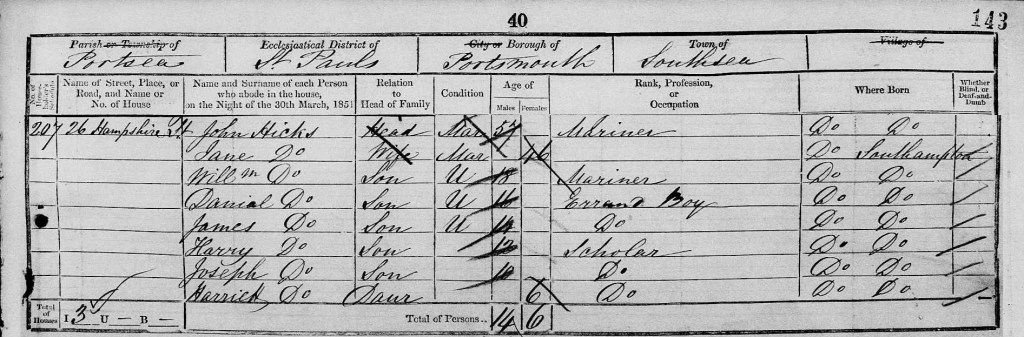 40
143
Parish or Township of Ecclesiastical District of City or Borough of Town of Village of
Portsea St Pauls Portsmouth Southsea
No. of House-holder's Schedule Name of Street, Place, or Road, and Name or No. of House Name and Surname of each Person who abode in the house, on the Night of the 30th March, 1851 Relation to Head of Family Condition Age of Males Females Rank, Profession, or Occupation Where Born Whether Blind, or Deaf-and-Dumb
207 26 Hampshire St John Hicks Head Mar 57 Mariner Do Do
Jane Do Wife Mar 46 Do Southampton
Willm Do Son U 18 Mariner Do Do
Daniel Do Son U 16 Errand Boy Do Do
James Do Son U 14 Do Do Do
Harry Do Son 12 Scholar Do Do
Joseph Do Son 10 Do Do Do
Harriet Do Daur 6 Do Do Do
Total of Houses I 3 U – B – Total of Persons.. 14 6